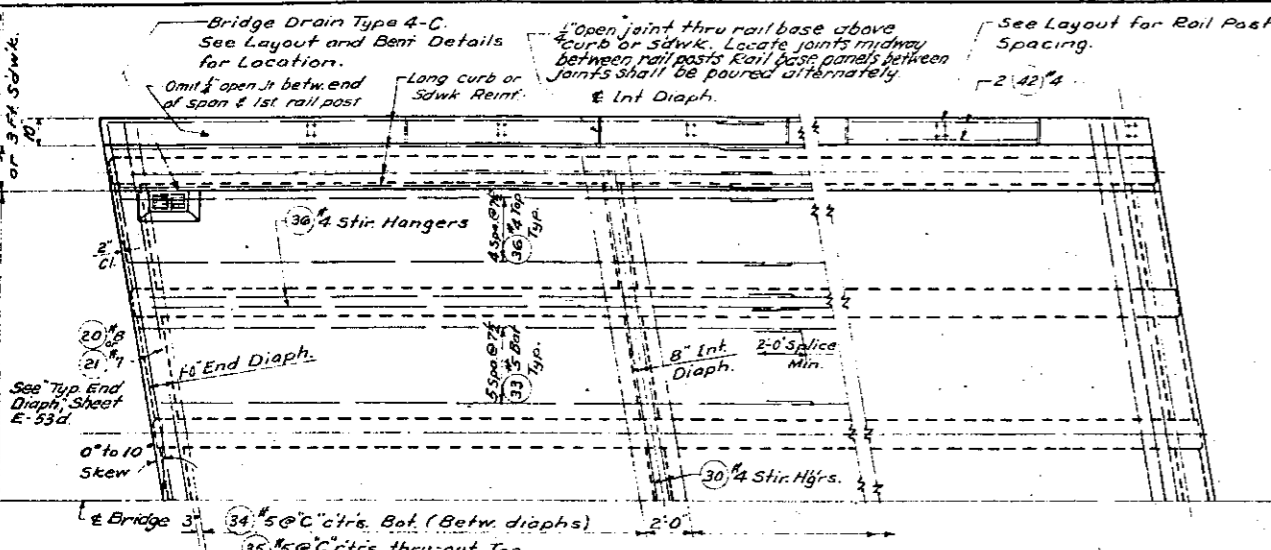 Bridge Drain Type 4-C.
See Layout and Bent Details
for Location.
Omit ¼" open jt betw. end
of span & 1st rail post
Long curb or
Sdwk Reinf.
¼" Open joint thru rail base above
curb or sdwk. Locate joints midway
between rail posts Rail base panels between
joints shall be poured alternately.
℄ Int Diaph.
See Layout for Rail Post
Spacing.
2 (42) #4
or 3 Ft. Sdwk.
10"
(36) #4 Stir. Hangers
4 Spa. @ 7½
(36) #4 Top
Typ.
2"
Cl.
(20) #8
or
(21) #7
See "Typ. End
Diaph," Sheet
E-53d.
1'-0" End Diaph.
5 Spa. @ 7½
(33) #5 Bot
Typ.
8" Int.
Diaph.
2'-0" Splice
Min.
0° to 10°
Skew
(30) #4 Stir. Hgrs.
℄ Bridge 3"
(34) #5 @ "C" ctrs. Bot. (Betw. diaphs)
2'-0"
(35) #5 @ "C" ctrs. thru-out Top